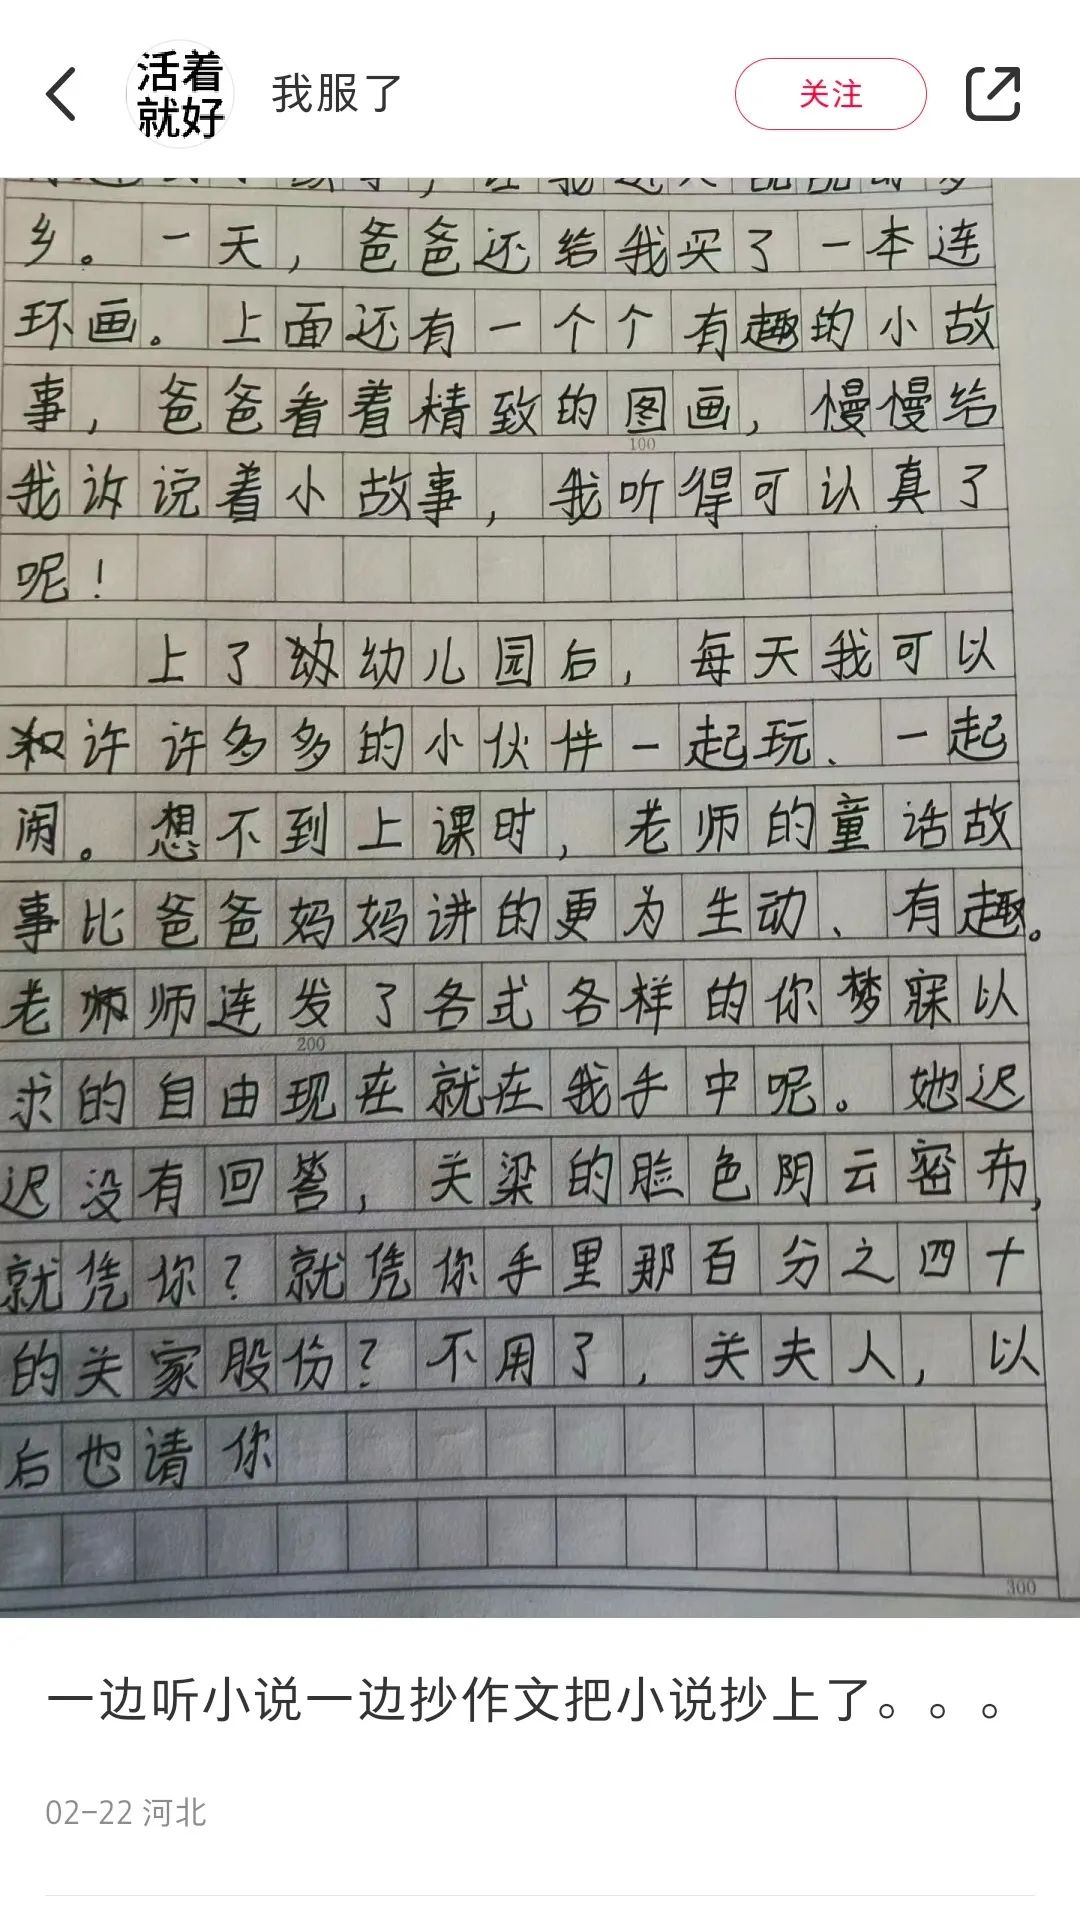 活着
就好
我服了
关注
乡。一天,爸爸还给我买了一本连
环画。上面还有一个个有趣的小故
事,爸爸看着精致的图画,慢慢给
100
我诉说着小故事,我听得可认真了
呢!
上了幼儿园后,每天我可以
和许许多多的小伙伴一起玩、一起
闹。想不到上课时,老师的童话故
事比爸爸妈妈讲的更为生动、有趣。
老师连发了各式各样的你梦寐以
200
求的自由现在就在我手中呢。她迟
迟没有回答,关梁的脸色阴云密布,
就凭你?就凭你手里那百分之四十
的关家股份?不用了,关夫人,以
后也请你
300
一边听小说一边抄作文把小说抄上了。。。
02-22 河北